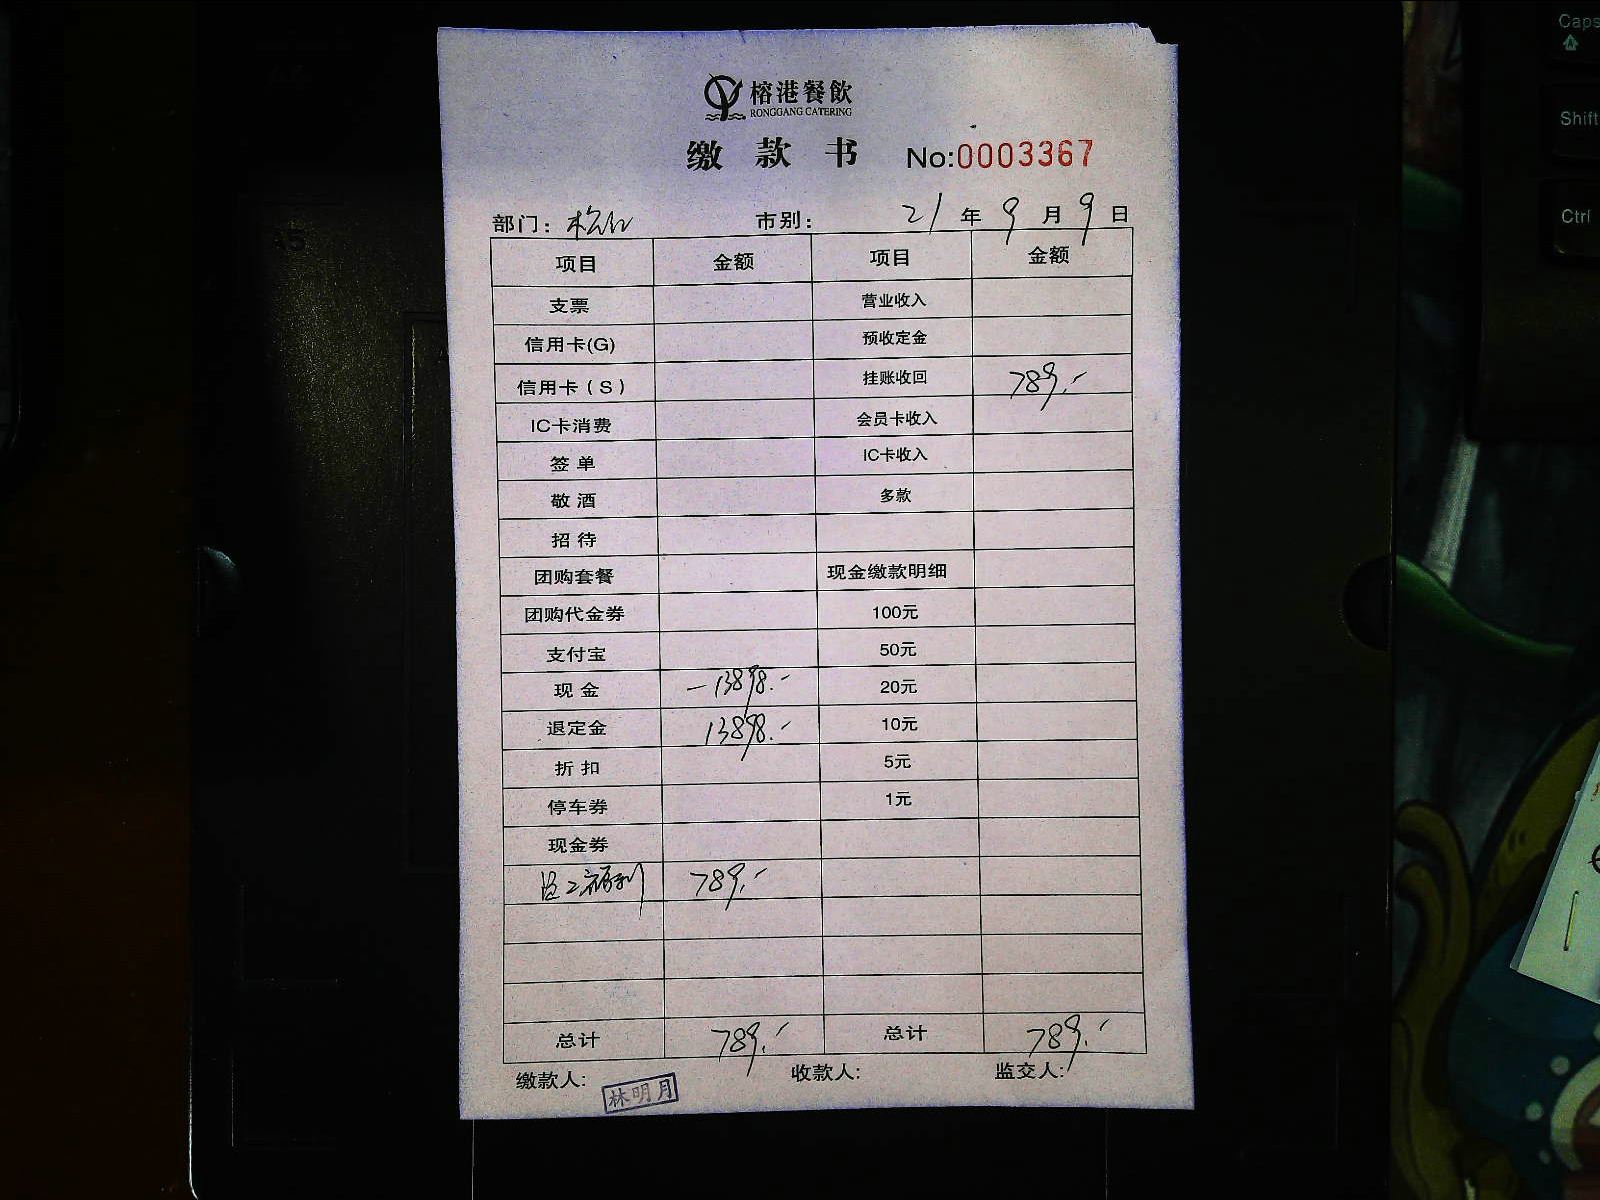 榕港餐飲
RONGGANG CATERING
缴款书 No:0003367
部门: 市别: 21年9月9日
项目 金额 项目 金额
支票 营业收入
信用卡(G) 预收定金
信用卡(S) 挂账收回 789.-
IC卡消费 会员卡收入
签单 IC卡收入
敬酒 多款
招待
团购套餐 现金缴款明细
团购代金券 100元
支付宝 50元
现金 -13898.- 20元
退定金 13898.- 10元
折扣 5元
停车券 1元
现金券
员工福利 789.-
总计 789.- 总计 789.-
缴款人: 林明月 收款人: 监交人:
Caps
Shift
Ctrl
A5